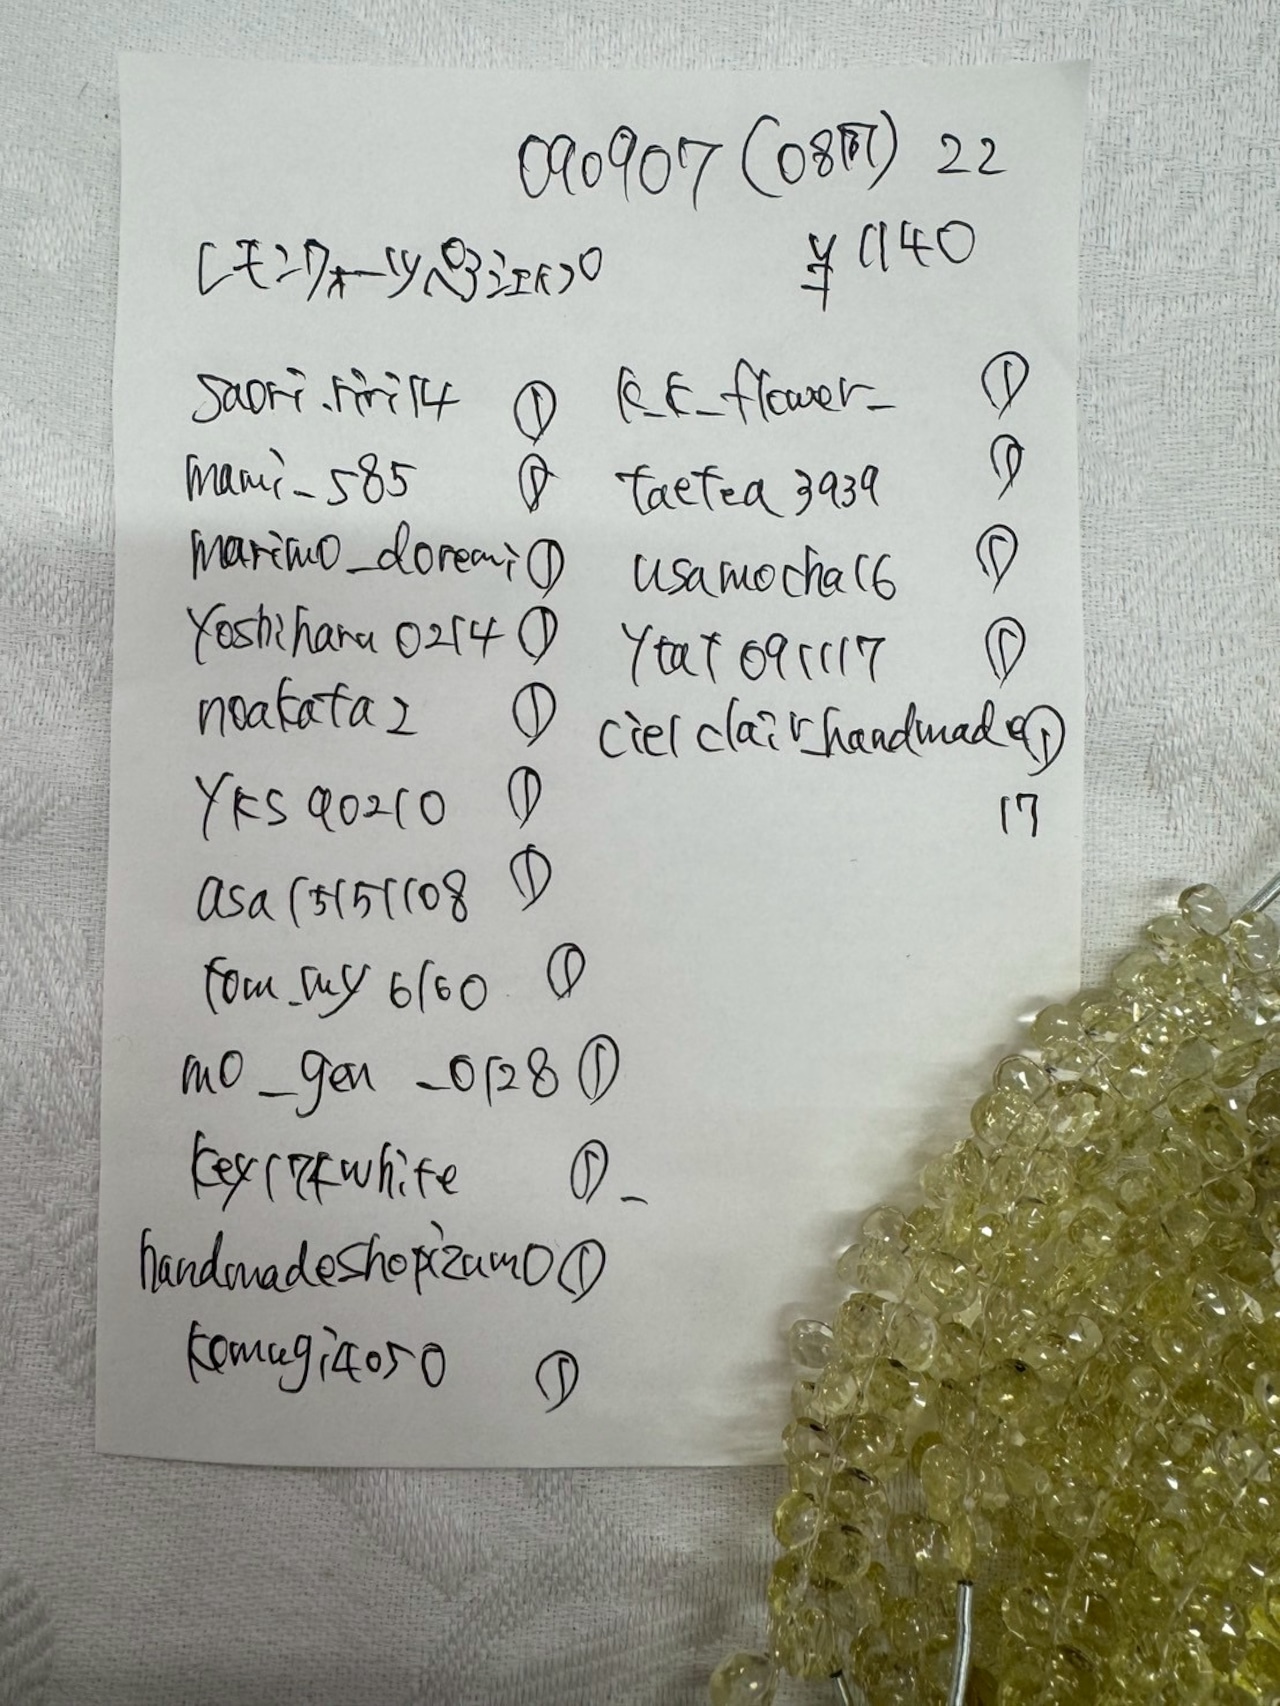 090907(08円) 22
レモンクォーツペアシェイプ ¥1140
saori.riri14 ①
mami_585 ①
marimo_doremi ①
yoshiharu0214 ①
noakata2 ①
YKS90210 ①
asa15151108 ①
tom_my6160 ①
mo_gen_0128 ①
key174white ①
handmadeshopizumo ①
komugi4050 ①
k_k_flower_ ①
taetea3939 ①
usamocha16 ①
ytat091117 ①
cielclair_handmade ①
17